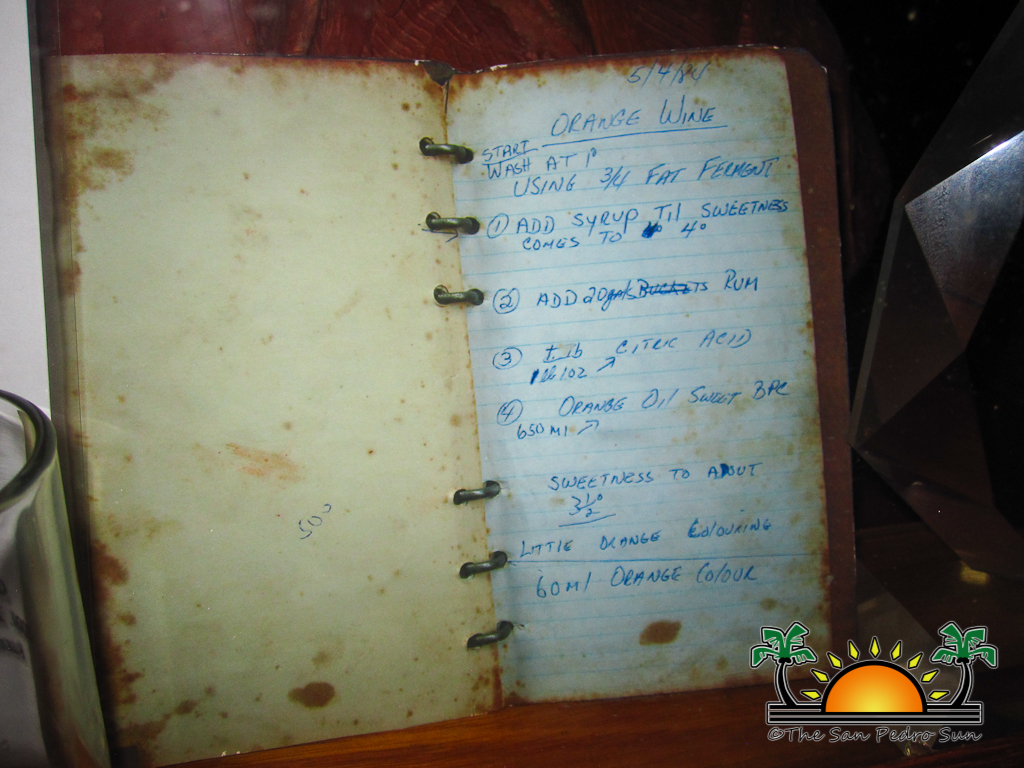 5/4/84
ORANGE WINE
START
WASH AT 1°
USING 3/4 FAT FERMENT
① ADD SYRUP Til SWEETNESS
COMES TO 4°
② ADD 20gals BUCKETS RUM
③ 1 lb CITRIC ACID
1 lb 1oz ↗
④ ORANGE OIl SWEET BPC
650 Ml ↗
SWEETNESS TO ABOUT
3½°
LITTLE ORANGE COLOURING
60 Ml ORANGE COLOUR
500
©The San Pedro Sun